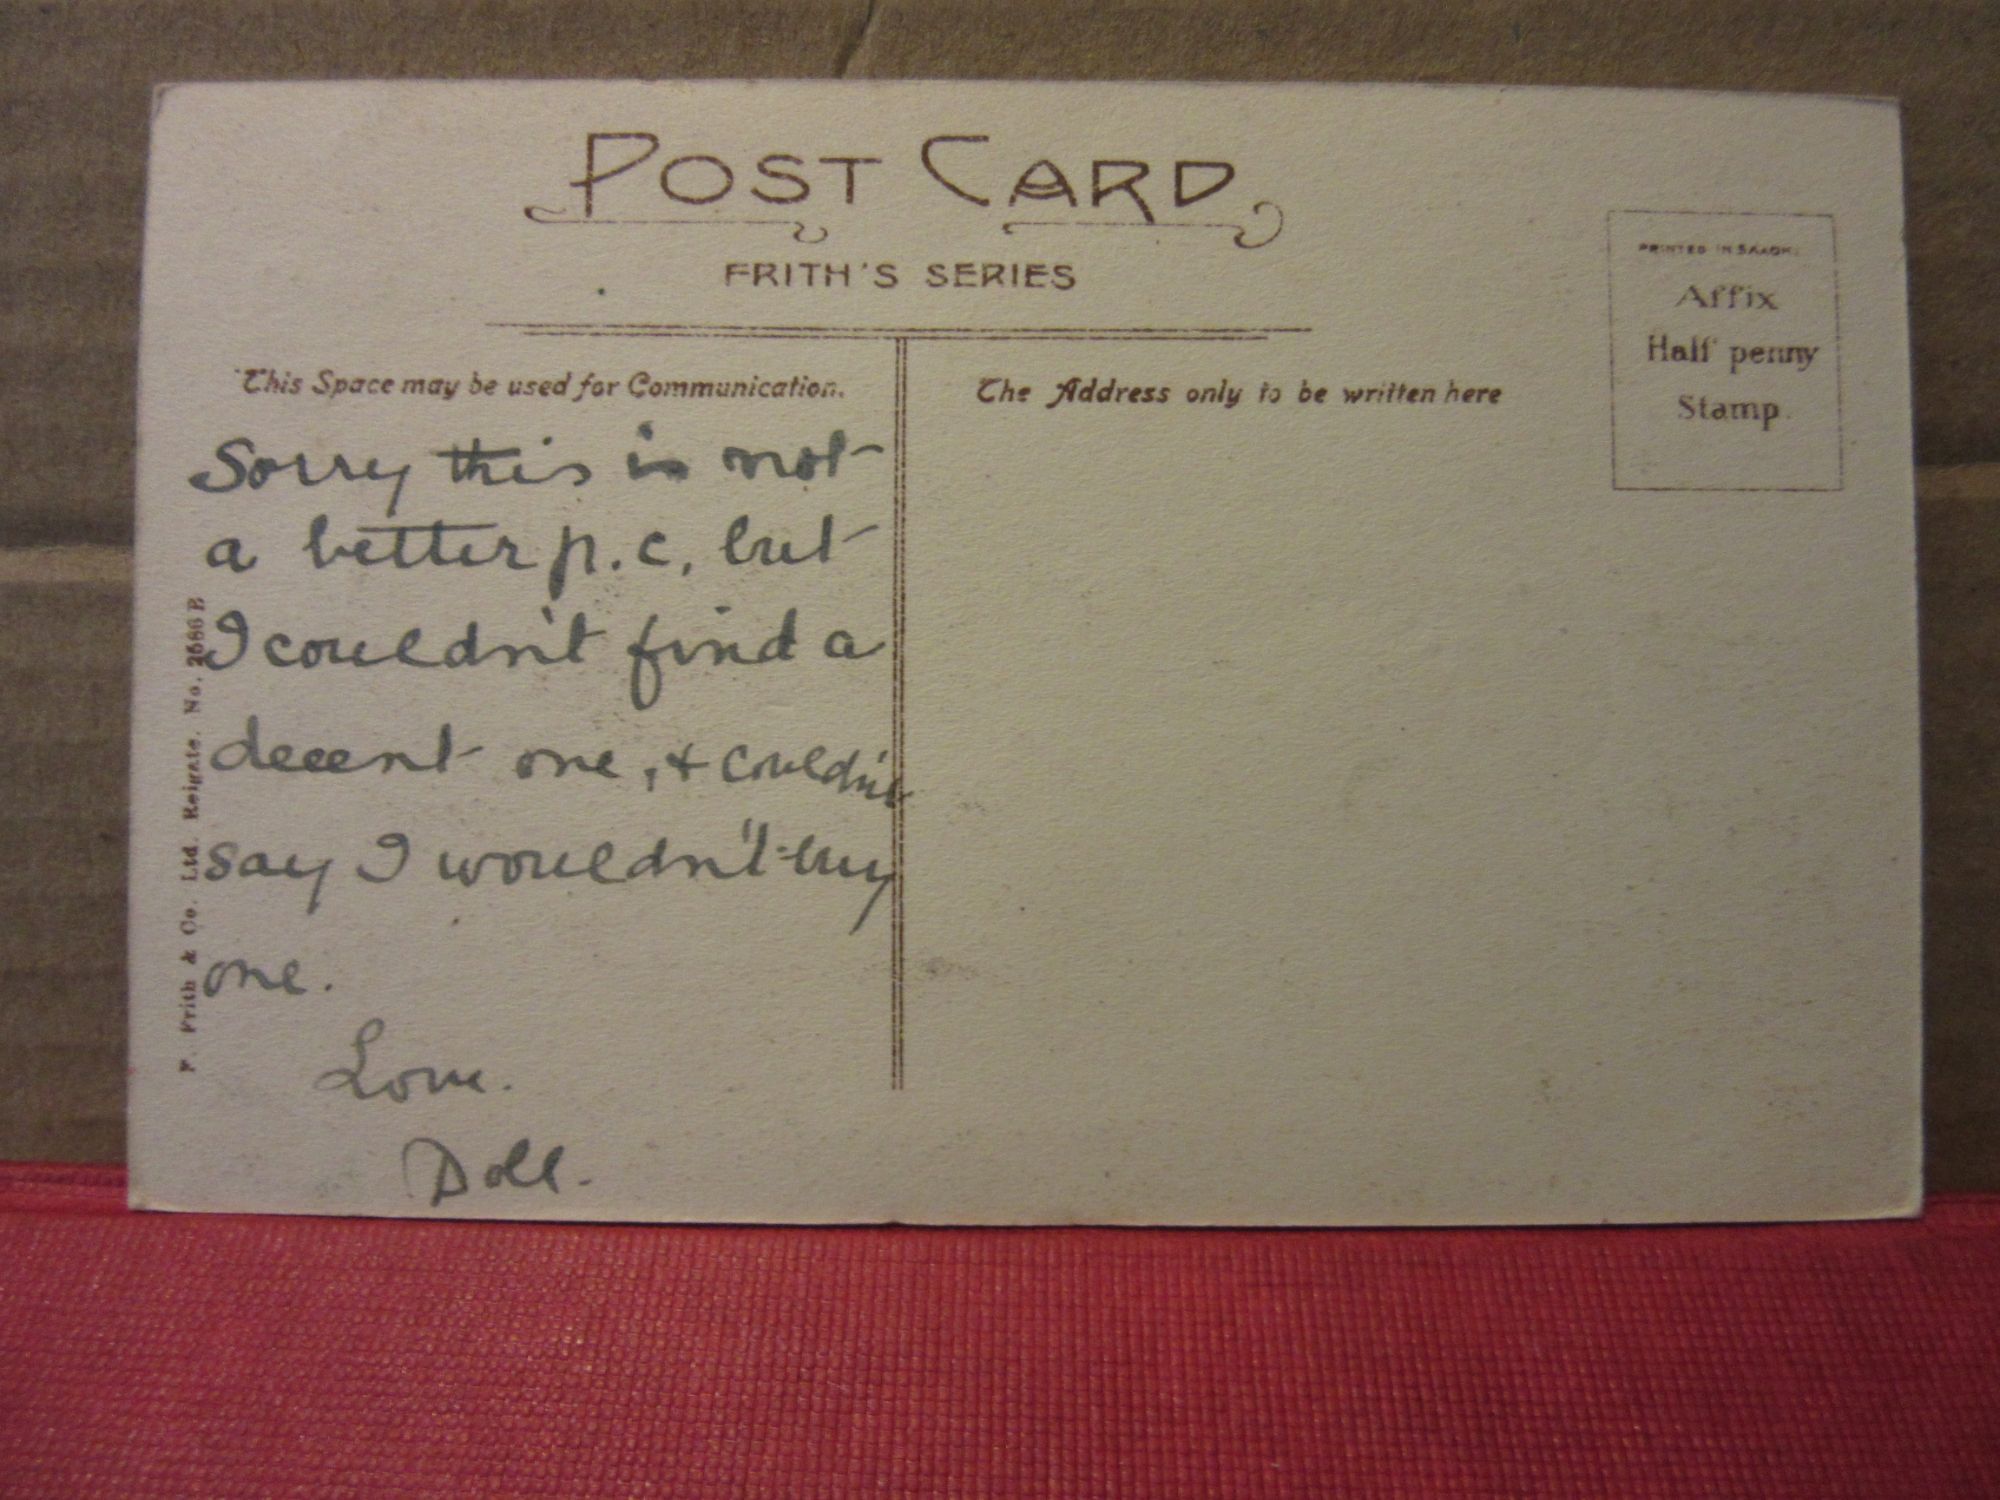 POST CARD
FRITH'S SERIES
PRINTED IN SAXONY.
Affix
Half penny
Stamp.
This Space may be used for Communication.
The Address only to be written here
Sorry this is not
a better p.c, but
I couldn't find a
decent one, & couldn't
say I wouldn't buy
one.
Love.
Doll.
F. Frith & Co. Ltd. Reigate. No. 2686B